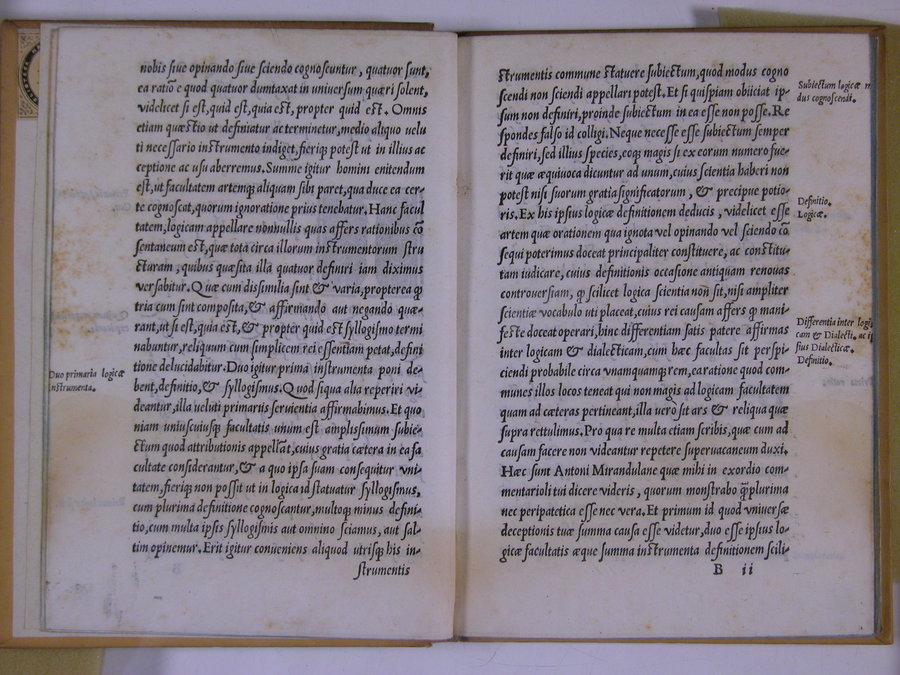 nobis siue opinando siue sciendo cognoscuntur, quatuor sunt,
ea ratiōe quod quatuor dumtaxat in uniuersum quæri solent,
videlicet si est, quid est, quia est, propter quid est. Omnis
etiam quæstio ut definiatur ac terminetur, medio aliquo uelu
ti necessario instrumento indiget, fieriq; potest ut in illius ac
ceptione ac usu aberremus. Summe igitur homini enitendum
est, ut facultatem artemq; aliquam sibi paret, qua duce ea cer-
te cognoscat, quorum ignoratione prius tenebatur. Hanc facul
tatem, logicam appellare nonnullis quas affers rationibus cō
sentaneum est, quæ tota circa illorum instrumentorum stru
cturam, quibus quæsita illa quatuor definiri iam diximus
versabitur. Quæ cum dissimilia sint & varia, propterea ꝙ
tria cum sint composita, & affirmando aut negando quæ-
rant, ut si est, quia est, & propter quid est syllogismo termi
nabuntur, reliquum cum simplicem rei essentiam petat, defini
tione delucidabitur. Duo igitur prima instrumenta poni de-
bent, definitio, & syllogismus. Quod siqua alia reperiri vi-
deantur, illa ueluti primariis seruientia affirmabimus. Et quo
niam uniuscuiusq; facultatis unum est amplissimum subie-
ctum quod attributionis appellāt, cuius gratia cætera in ea fa
cultate considerantur, & a quo ipsa suam consequitur vni-
tatem, fieriq; non possit ut in logica id statuatur syllogismus,
cum plurima definitione cognoscantur, multoq; minus defini-
tio, cum multa ipsis syllogismis aut omnino sciamus, aut sal-
tim opinemur. Erit igitur conueniens aliquod utrisq; his in-
strumentis
Duo primaria logicæ
instrumenta.
strumentis commune statuere subiectum, quod modus cogno
scendi non sciendi appellari potest. Et si quispiam obiiciat ip-
sun non definiri, proinde subiectum in ea esse non posse. Re
spondes falso id colligi. Neque necesse esse subiectum semper
definiri, sed illius species, eoq; magis si ex eorum numero fue-
rit quæ æquiuoca dicuntur ad unum, cuius scientia haberi non
potest nisi suorum gratia significatorum, & precipue potio-
ris. Ex his ipsius logicæ definitionem deducis, videlicet esse
artem quæ orationem qua ignota vel opinando vel sciendo cō
sequi poterimus doceat principaliter constituere, ac constitu-
tam iudicare, cuius definitionis occasione antiquam renouas
controuersiam, ꝙ scilicet logica scientia non sit, nisi ampliter
scientiæ vocabulo uti placeat, cuius rei causam affers ꝙ mani-
feste doceat operari, hinc differentiam satis patere affirmas
inter logicam & dialecticam, cum hæc facultas sit perspi-
ciendi probabile circa vnamquamq; rem, ea ratione quod com-
munes illos locos teneat qui non magis ad logicam facultatem
quam ad cæteras pertineant, illa uero sit ars & reliqua quæ
supra rettulimus. Pro qua re multa etiam scribis, quæ cum ad
causam facere non videantur repetere superuacaneum duxi.
Hæc sunt Antoni Mirandulane quæ mihi in exordio com-
mentarioli tui dicere videris, quorum monstrabo ꝙplurima
nec peripatetica esse nec vera. Et primum id quod vniuersæ
deceptionis tuæ summa causa esse videtur, duo esse ipsius lo-
gicæ facultatis æque summa instrumenta definitionem scili-
B ii
Subiectum logicæ m
dus cognoscendi.
Definitio.
Logicæ.
Differentia inter logi
cam & Dialecti. ac ip
sius Dialecticæ.
Definitio.